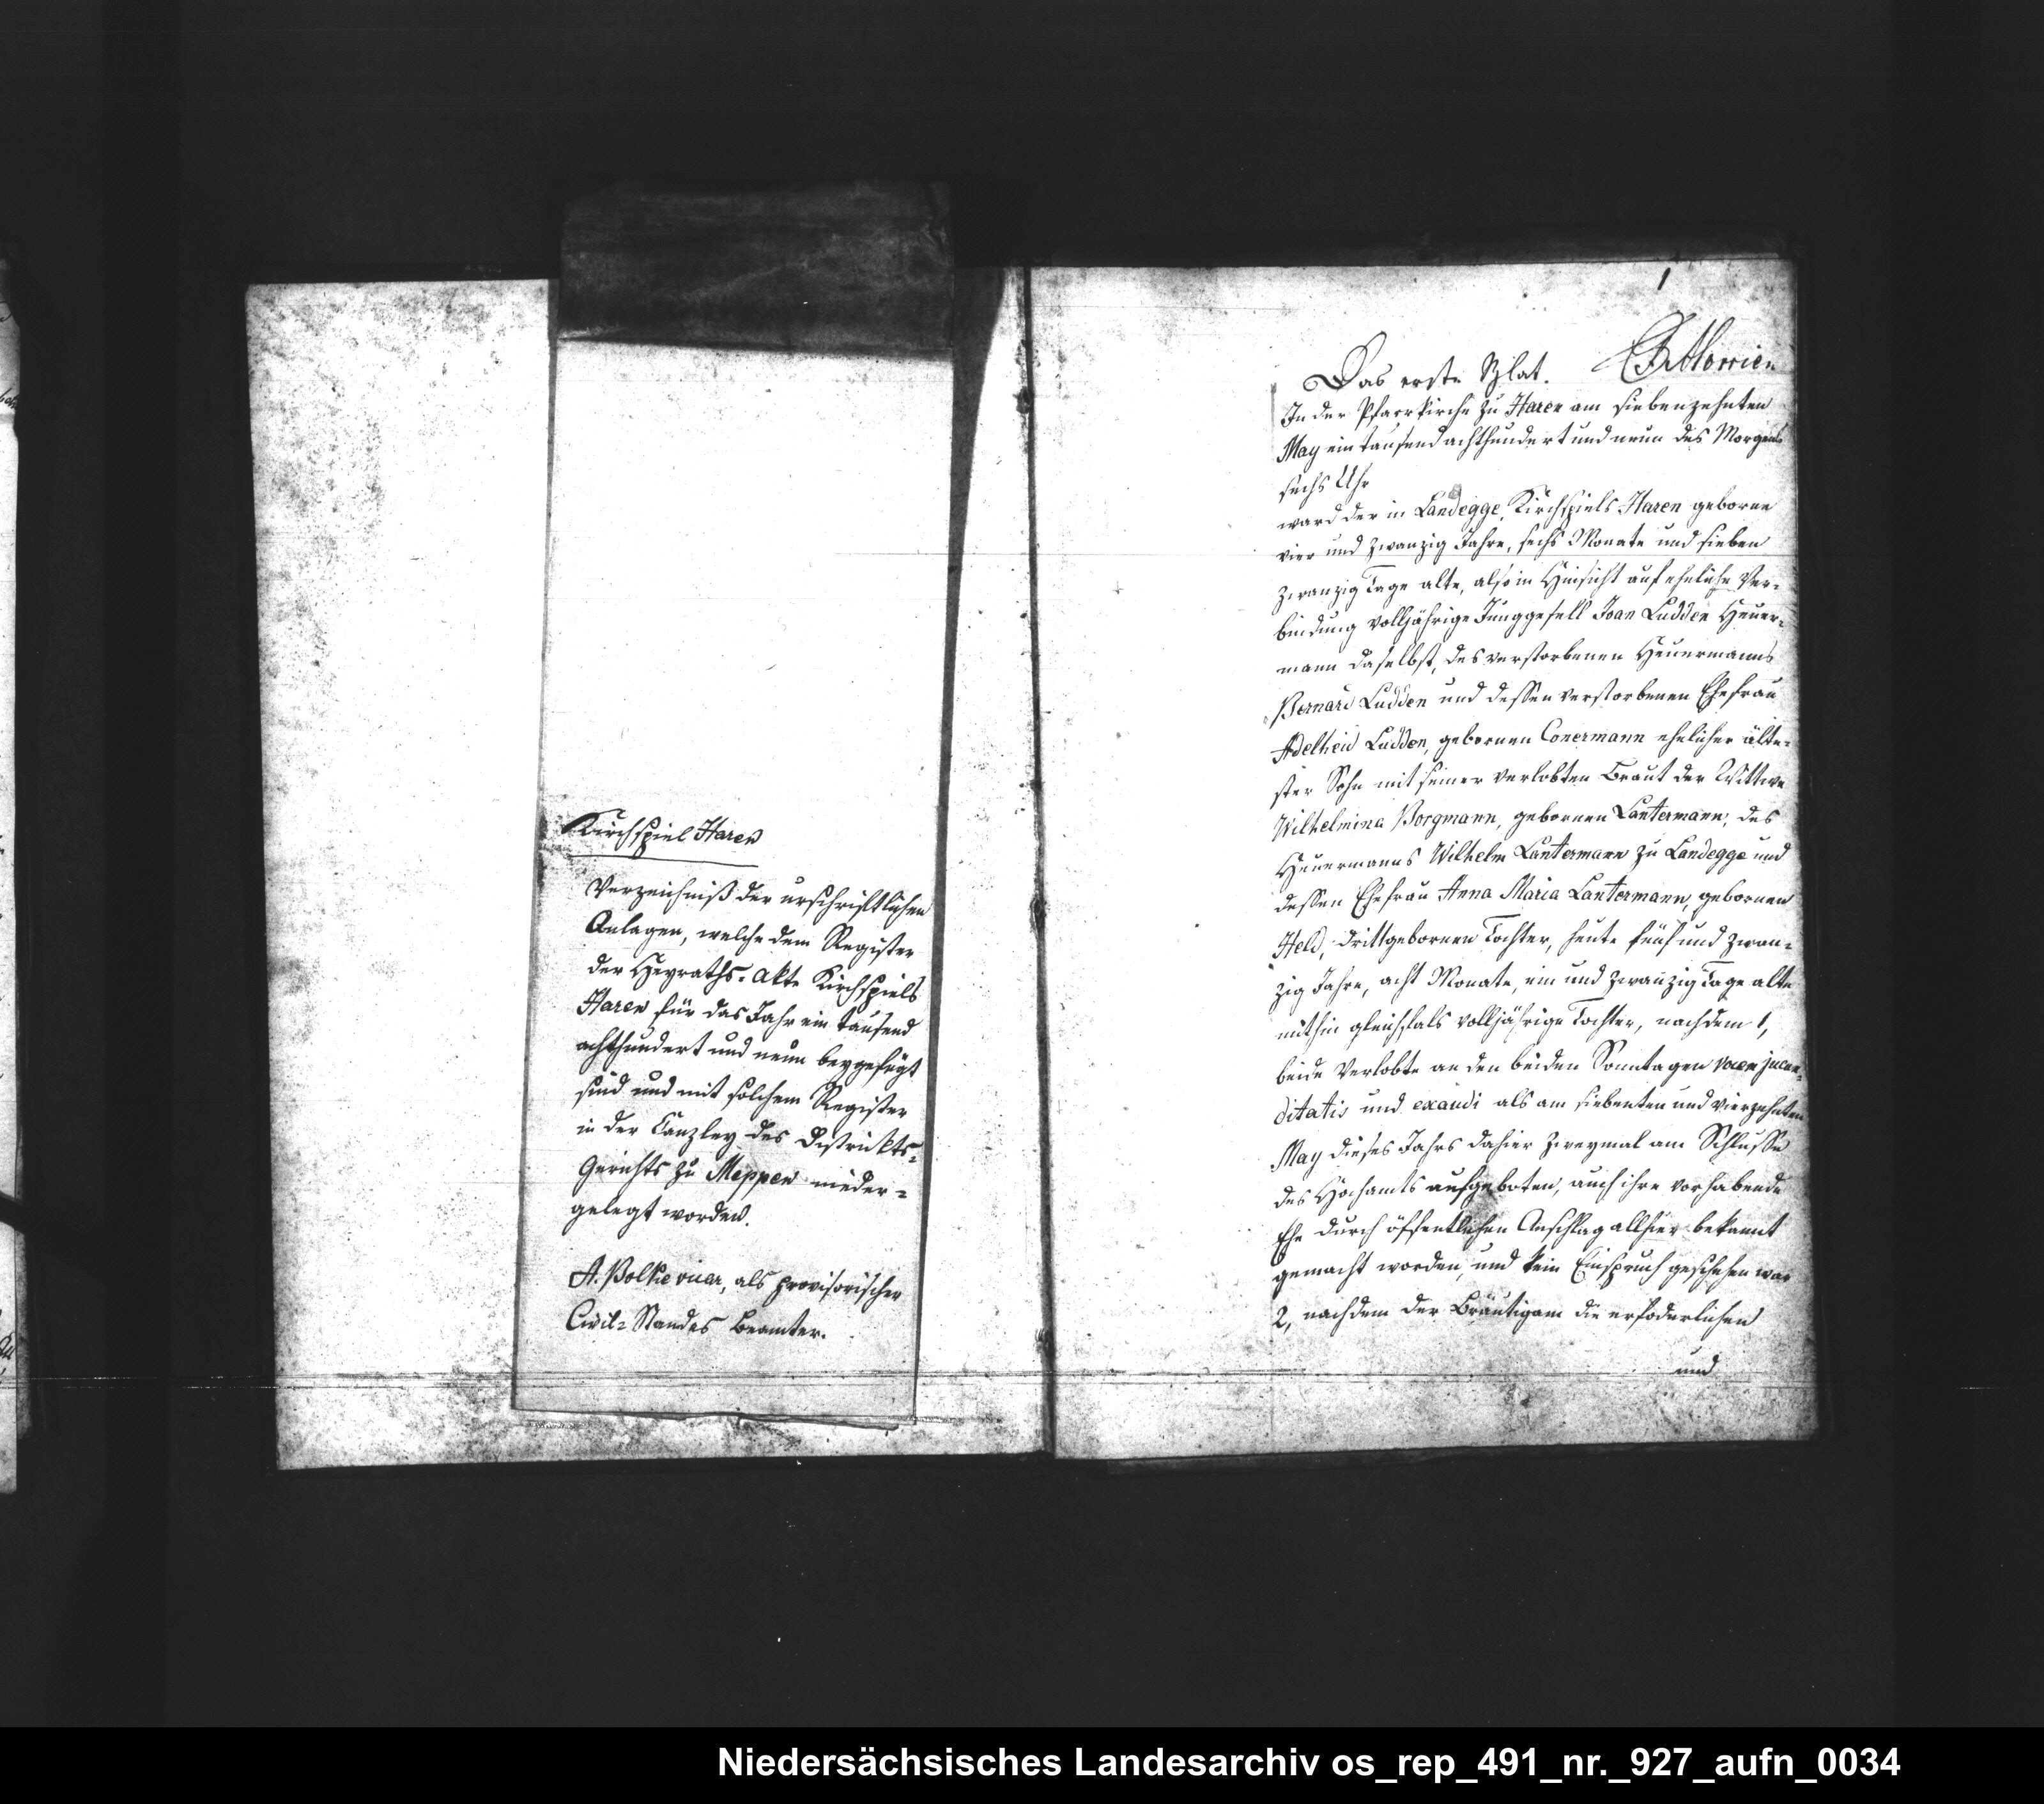 Kirchspiel Haren
Verzeichniß der urschriftlichen
Anlagen, welche dem Register
der Heyraths-Akte Kirchspiels
Haren für das Jahr ein tausend
achthundert und neun beygefügt
sind und mit solchem Register
in der Canzley des Districkts-
Gerichts zu Meppen nieder-
gelegt worden.
als provisorischer
Civil-Standes Beamter.
1
Das erste Blat.
In der Pfarrkirche zu Haren am siebenzehnten
May ein tausend achthundert und neun des Morgens
sechs Uhr
ward der in Landegge, Kirchspiels Haren geborne
vier und zwanzig Jahre, sechs Monate und sieben
zwanzig Tage alte, also in Hinsicht auf eheliche Ver-
bindung volljährige Junggesell Joan Ludden Heuer-
mann daselbst, des verstorbenen Heuermanns
Bernard Ludden und dessen verstorbenen Ehefrau
Adelheid Ludden, gebornen Conermann ehelicher älte-
ster Sohn mit seiner verlobten Braut der Wittwe
Wilhelmina Borgmann, gebornen Lantermann, des
Heuermanns Wilhelm Lantermann zu Landegge und
dessen Ehefrau Anna Maria Lantermann, gebornen
Held, drittgebornen Tochter, heute fünf und zwan-
zig Jahre, acht Monate, ein und zwanzig Tage alte
mithin gleichfals volljährige Tochter, nachdem 1,
beide Verlobte an den beiden Sonntagen vocem jucun-
ditatis und exaudi als am siebenten und vierzehnten
May dieses Jahrs dahier zweymal am Schlusse
des Hochamts aufgeboten, auch ihre vorhabende
Ehe durch öffentlichen Anschlag allhier bekannt
gemacht worden, und kein Einspruch geschehen war
2, nachdem der Bräutigam die erforderlichen
und
Niedersächsisches Landesarchiv os_rep_491_nr._927_aufn_0034